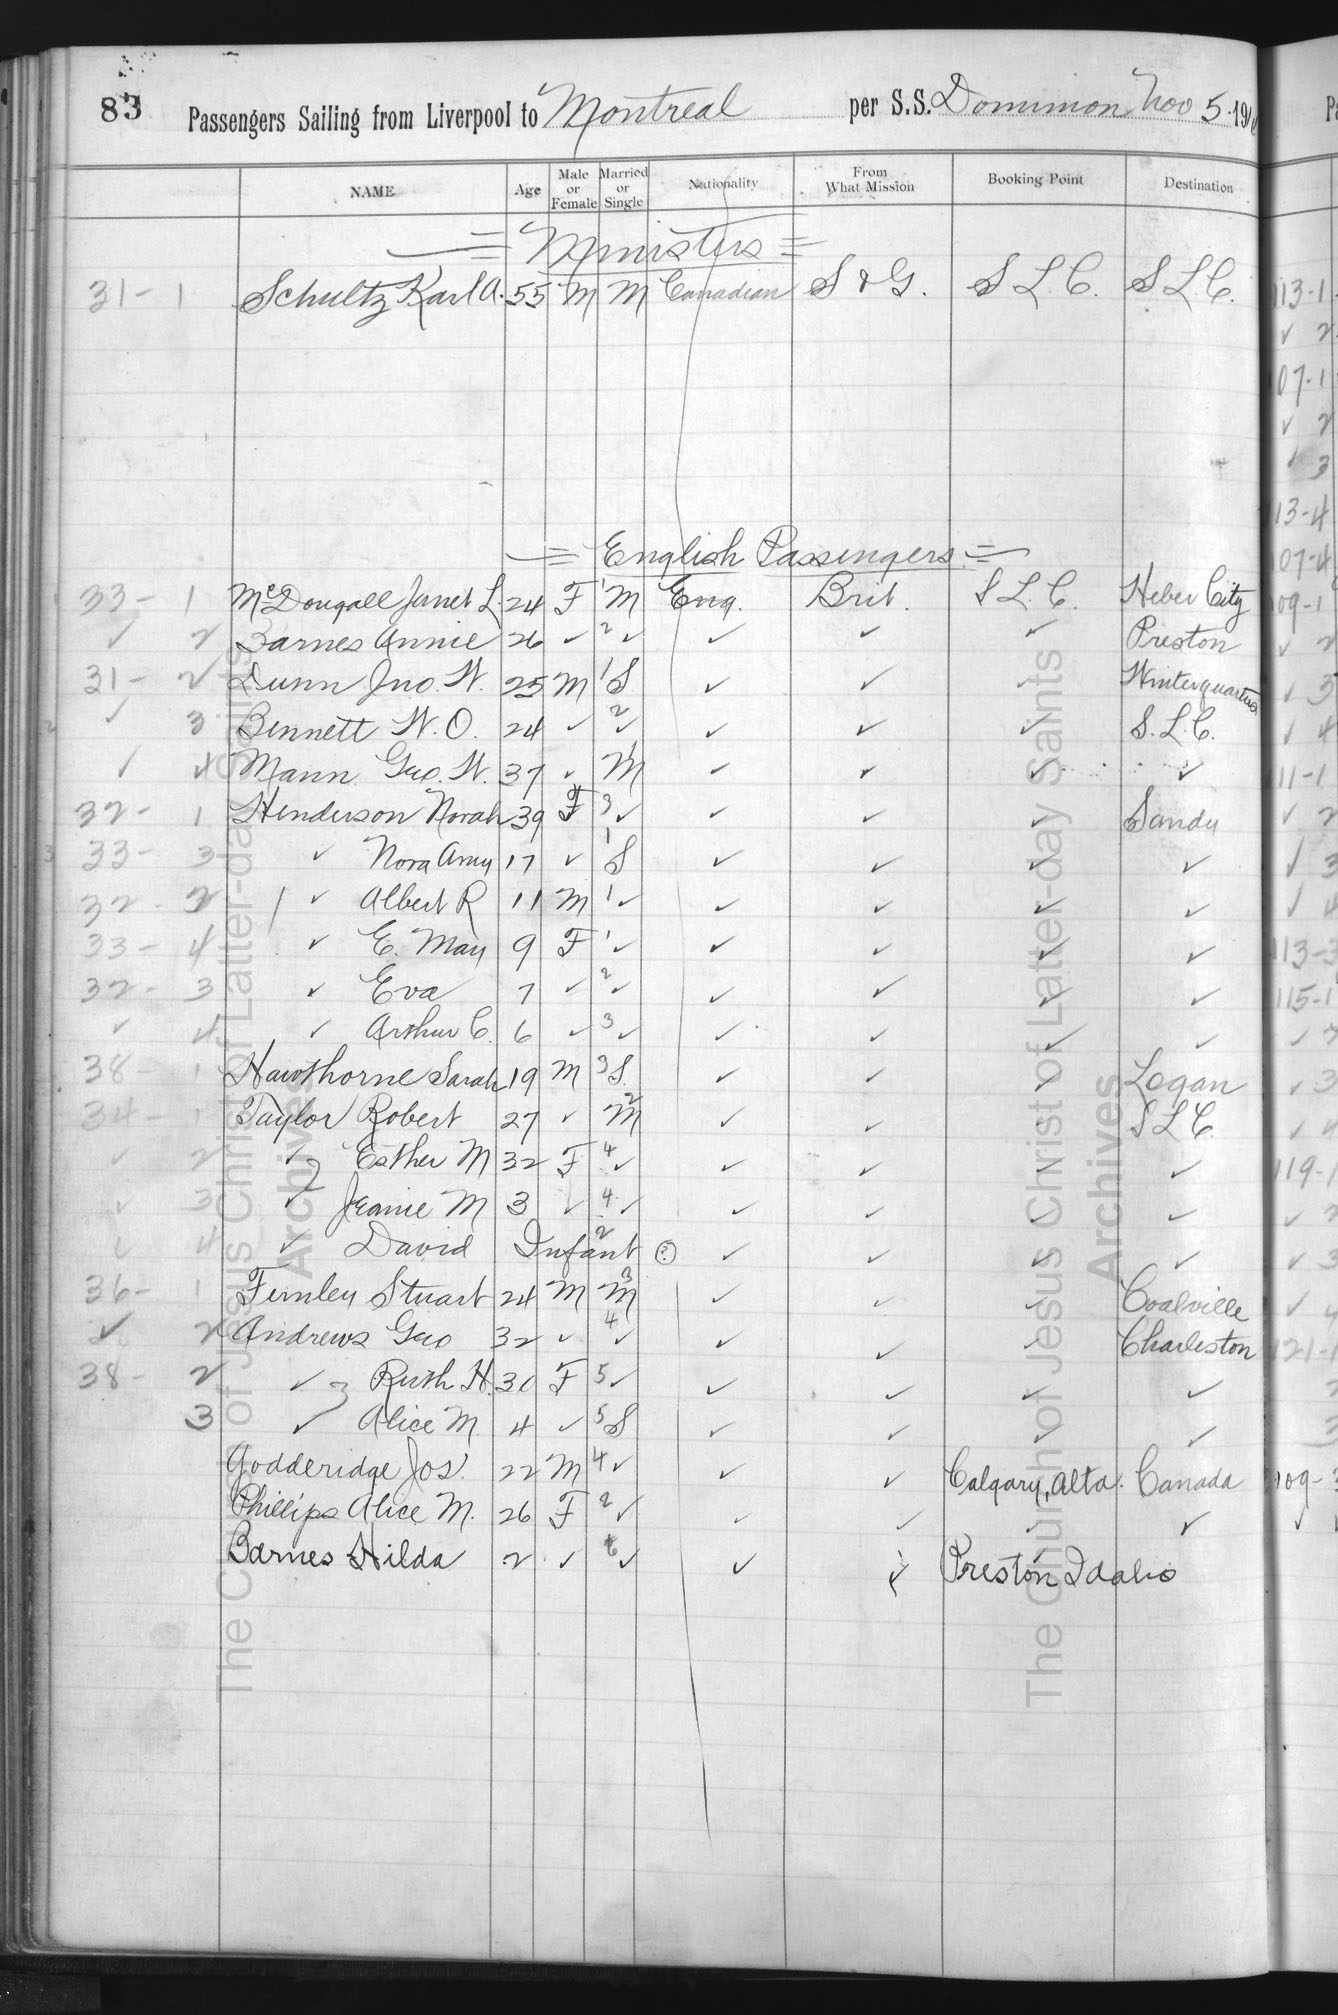 83 Passengers Sailing from Liverpool to Montreal per S.S. Dominion Nov 5 19
NAME Age Male or Female Married or Single Nationality From What Mission Booking Point Destination
Ministers
31-1 Schultz Karl A. 55 M M Canadian S & G. S L C. S L C.
English Passengers
33-1 McDougall Janet L. 24 F 1 M Eng. Brit. S L C. Heber City
✓ 2 Barnes Annie 26 ✓ 2 ✓ ✓ ✓ ✓ Preston
31-2 Dunn Jno. W. 25 M 1 S ✓ ✓ ✓ Winterquarters
✓ 3 Bennett W. O. 24 ✓ 2 ✓ ✓ ✓ ✓ S. L. C.
✓ 4 Mann Geo. W. 37 ✓ 1 M ✓ ✓ ✓ ✓
32-1 Henderson Norah 39 F 3 ✓ ✓ ✓ ✓ Sandy
33-3 ✓ Nora Amy 17 ✓ 1 S ✓ ✓ ✓ ✓
32-2 ✓ Albert R 11 M 1 ✓ ✓ ✓ ✓ ✓
33-4 ✓ E. May 9 F 1 ✓ ✓ ✓ ✓ ✓
32-3 ✓ Eva 7 ✓ 2 ✓ ✓ ✓ ✓ ✓
✓ 4 ✓ Arthur C. 6 ✓ 3 ✓ ✓ ✓ ✓ ✓
38-1 Hawthorne Sarah 19 M 3 S. ✓ ✓ ✓ Logan
34-1 Taylor Robert 27 ✓ 2 M ✓ ✓ S L C.
✓ 2 ✓ Esther M 32 F 4 ✓ ✓ ✓ ✓ ✓
✓ 3 ✓ Jeanie M 3 ✓ 4 ✓ ✓ ✓ ✓ ✓
✓ 4 ✓ David Infant 2 (?) ✓ ✓ ✓ ✓
36-1 Fernley Stuart 24 M 3 M ✓ ✓ ✓ Coalville
✓ 2 Andrews Geo 32 ✓ 4 ✓ ✓ ✓ ✓ Charleston
38-2 ✓ Ruth H. 30 F 5 ✓ ✓ ✓ ✓ ✓
3 ✓ Alice M. 4 ✓ 5 S ✓ ✓ ✓ ✓
Godderidge Jos. 22 M 4 ✓ ✓ ✓ Calgary, Alta. Canada
Phillips Alice M. 26 F 2 ✓ ✓ ✓ ✓ ✓
Barnes Hilda 2 ✓ 6 ✓ ✓ ✓ Preston Idaho
The Church of Jesus Christ of Latter-day Saints
Archives
The Church of Jesus Christ of Latter-day Saints
Archives